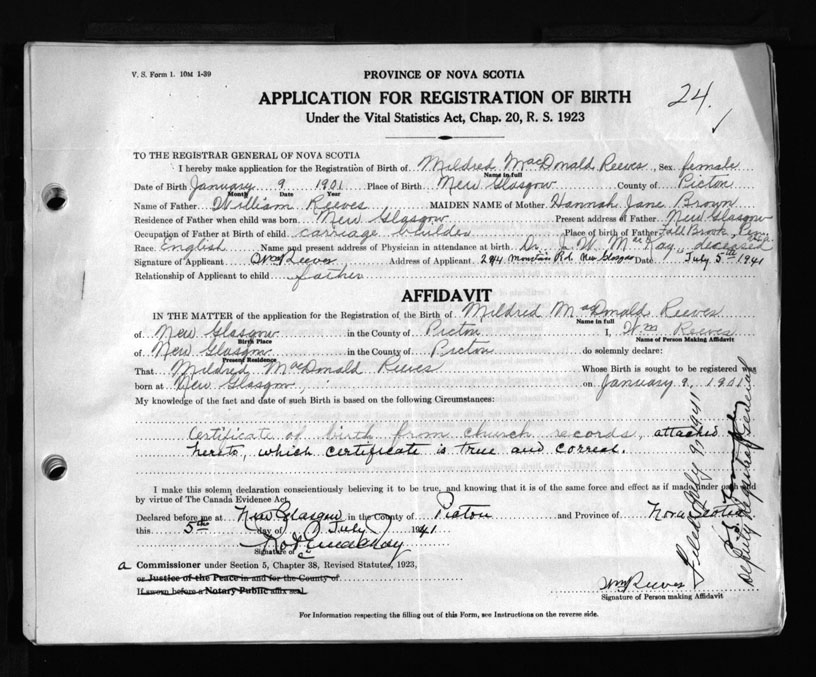 V. S. Form 1. 10M 1-39
PROVINCE OF NOVA SCOTIA
24.
APPLICATION FOR REGISTRATION OF BIRTH
Under the Vital Statistics Act, Chap. 20, R. S. 1923
TO THE REGISTRAR GENERAL OF NOVA SCOTIA
I hereby make application for the Registration of Birth of Mildred MacDonald Reeves, Sex female
Name in full
Date of Birth January 9 1901 Place of Birth New Glasgow County of Pictou
Month Day Year
Name of Father William Reeves MAIDEN NAME of Mother Hannah Jane Brown
Residence of Father when child was born New Glasgow Present address of Father New Glasgow
Occupation of Father at Birth of child carriage builder Place of birth of Father Fall Brook,
Race English Name and present address of Physician in attendance at birth Dr. J. W. McKay, "deceased"
Signature of Applicant Wm Reeves Address of Applicant 244 Mountain Rd. New Glasgow Date July 5th 1941
Relationship of Applicant to child father
AFFIDAVIT
IN THE MATTER of the application for the Registration of the Birth of Mildred MacDonald Reeves
Name in full
of New Glasgow in the County of Pictou I, Wm Reeves
Birth Place Name of Person Making Affidavit
of New Glasgow in the County of Pictou do solemnly declare:
Present Residence
That Mildred MacDonald Reeves Whose Birth is sought to be registered was
born at New Glasgow, on January 9, 1901
My knowledge of the fact and date of such Birth is based on the following Circumstances:
Certificate of birth from church records, attached
hereto, which certificate is true and correct.
I make this solemn declaration conscientiously believing it to be true, and knowing that it is of the same force and effect as if made under oath and
by virtue of The Canada Evidence Act.
Declared before me at New Glasgow in the County of Pictou and Province of Nova Scotia
this 5th day of July 1941
Signature of
a Commissioner under Section 5, Chapter 38, Revised Statutes, 1923,
or Justice of the Peace in and for the County of
If sworn before a Notary Public affix seal
Wm Reeves
Signature of Person making Affidavit
For Information respecting the filling out of this Form, see Instructions on the reverse side.
Filed July 9, 1941
Deputy Registrar General